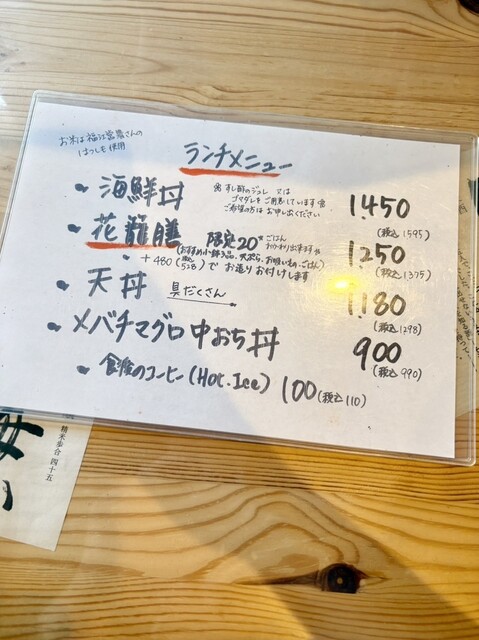 お米は福江営農さんの
はつしもを使用
ランチメニュー
・海鮮丼 1,450
※すし酢のジュレ 又は
ゴマダレをご用意しています※
ご希望の方はお申し出ください
(税込1595)
・花籠膳 限定20 1,250
ごはん
おかわり出来ます
(おすすめ小鉢3品、天ぷら、お吸いもの、ごはん)
(税込1375)
+480(税込528)でお造りお付けします
・天丼 具だくさん 1,180
(税込1298)
・メバチマグロ中おち丼 900
(税込990)
・食後のコーヒー(Hot.Ice) 100(税込110)
精米歩合 四十五